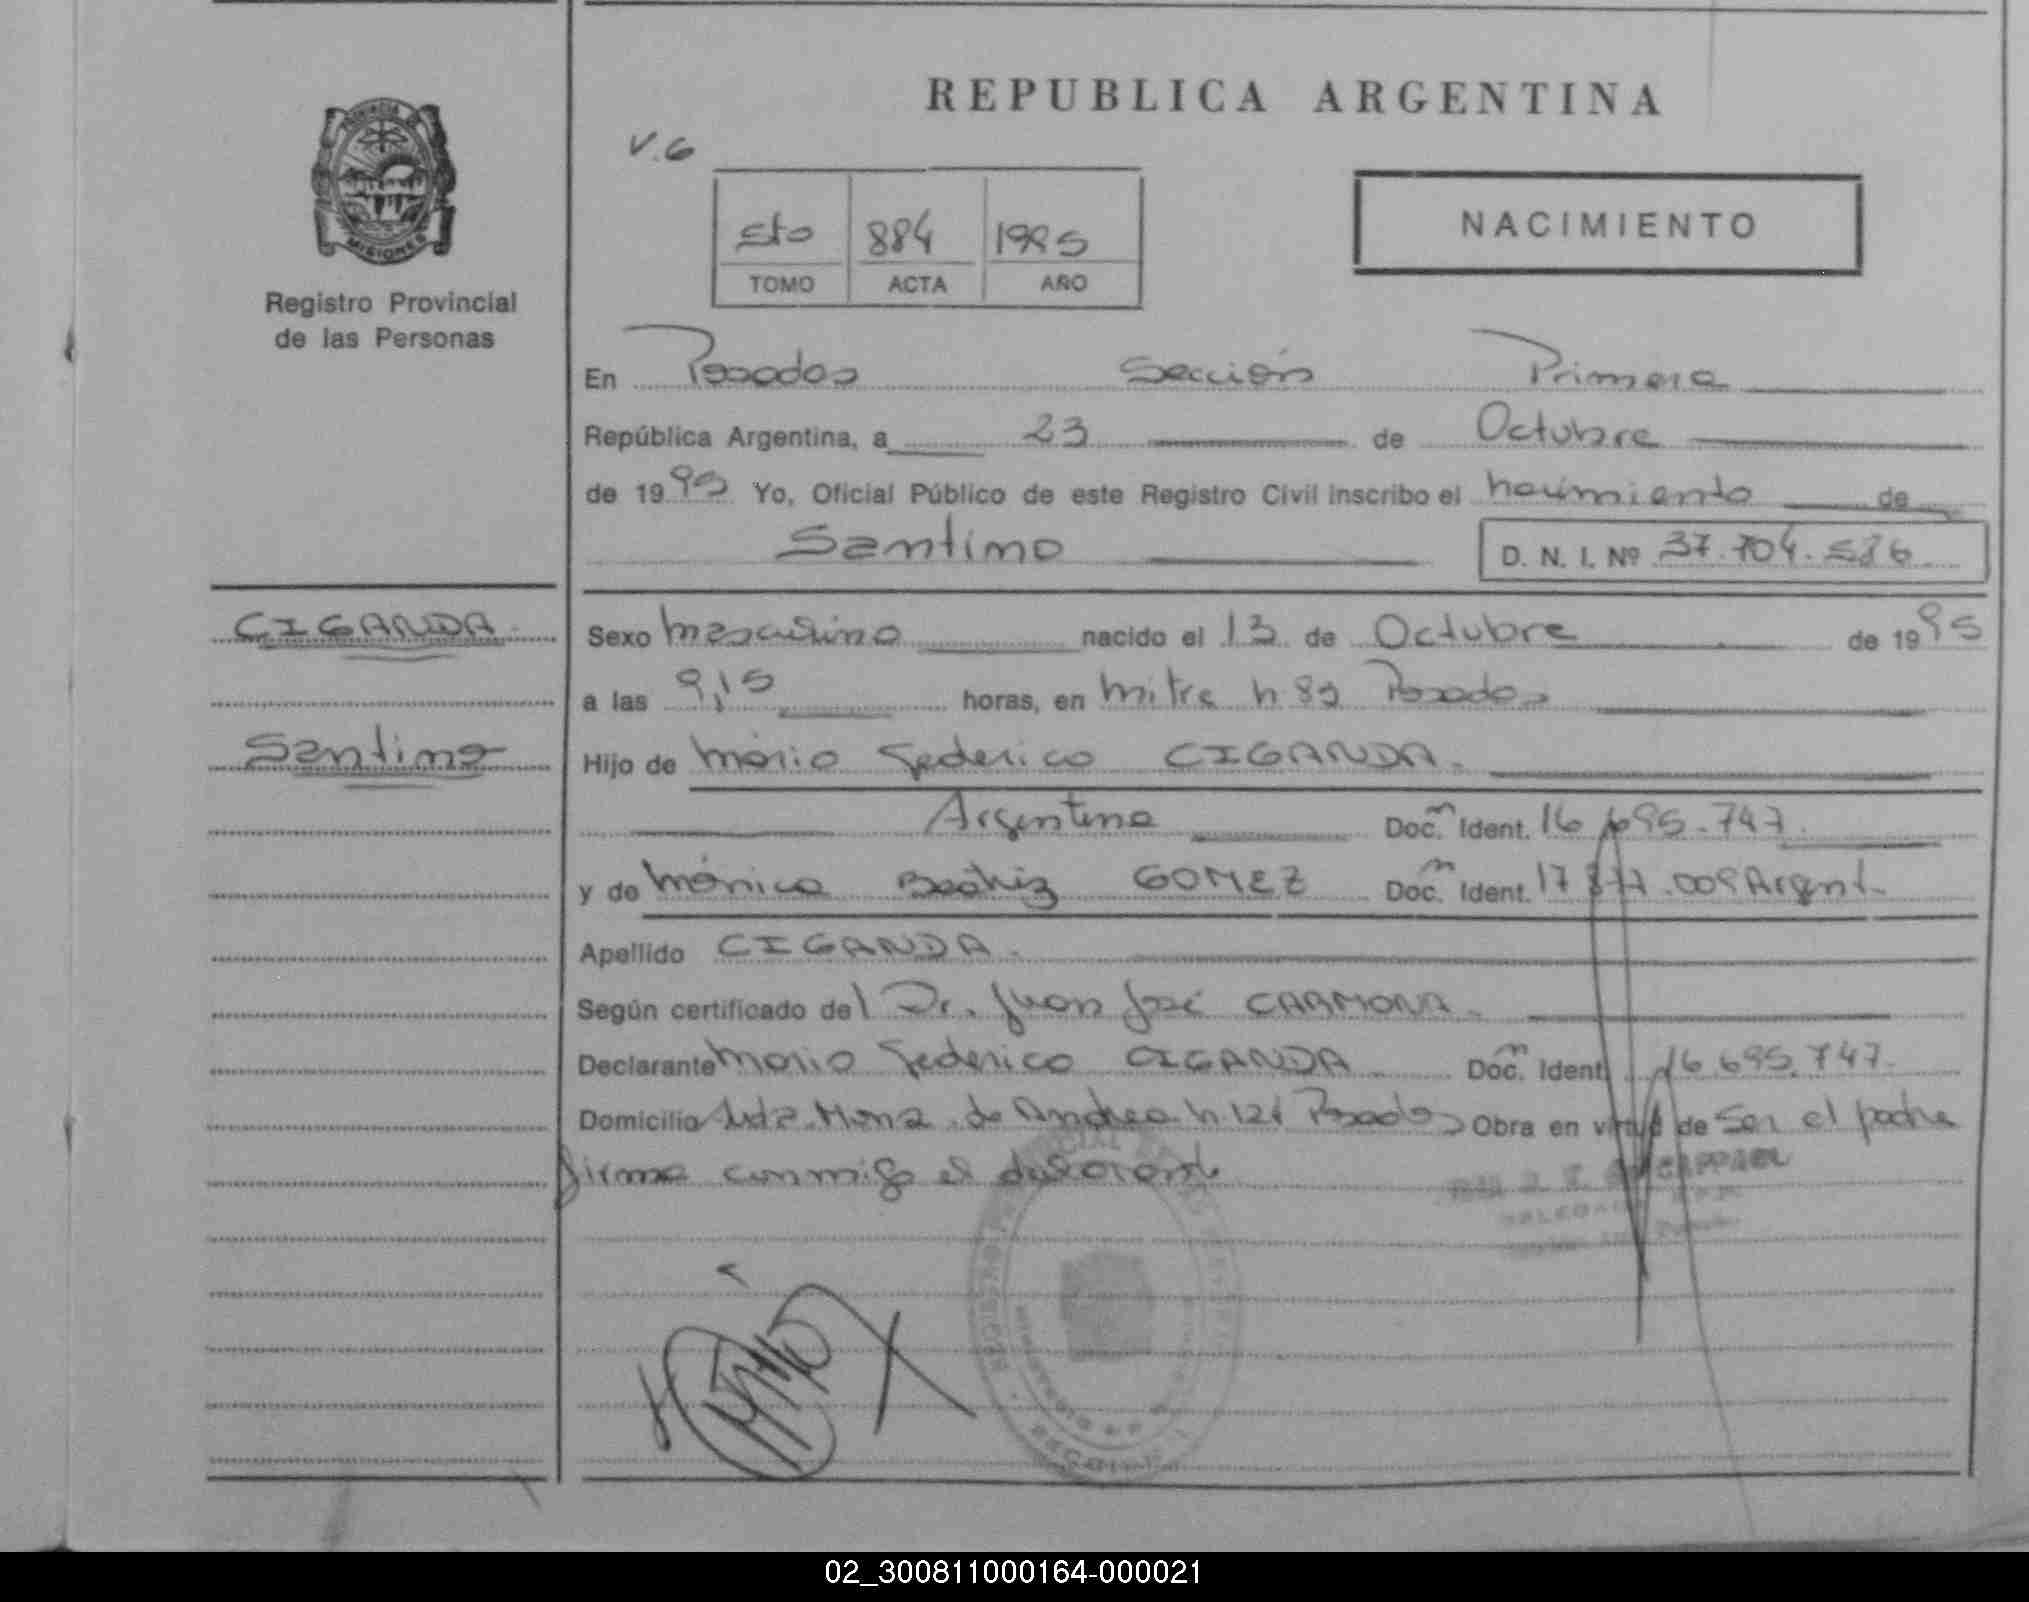 REPUBLICA ARGENTINA
V.6
5to 884 1995
TOMO ACTA AÑO
NACIMIENTO
PROVINCIA DE
MISIONES
Registro Provincial
de las Personas
En Posadas Sección Primera
República Argentina, a 23 de Octubre
de 1995 Yo, Oficial Público de este Registro Civil inscribo el nacimiento de
Santino
D. N. I. Nº 37.704.526
CIGANDA
Santino
Sexo masculino nacido el 13 de Octubre de 1995
a las 9,15 horas, en mitre n 89 Posadas
Hijo de Mario Federico CIGANDA.
Argentina Doc. Ident. 16.695.747
y de Mónica Beatriz GOMEZ Doc. Ident. 17 877.009 Argent.
Apellido CIGANDA.
Según certificado del Dr. Juan José CARMONA.
Declarante Mario Federico CIGANDA Doc. Ident. 16.695.747.
Domicilio de Andrea n 121 Posadas Obra en virtud de ser el padre
firma conmigo el declarante
02_300811000164-000021